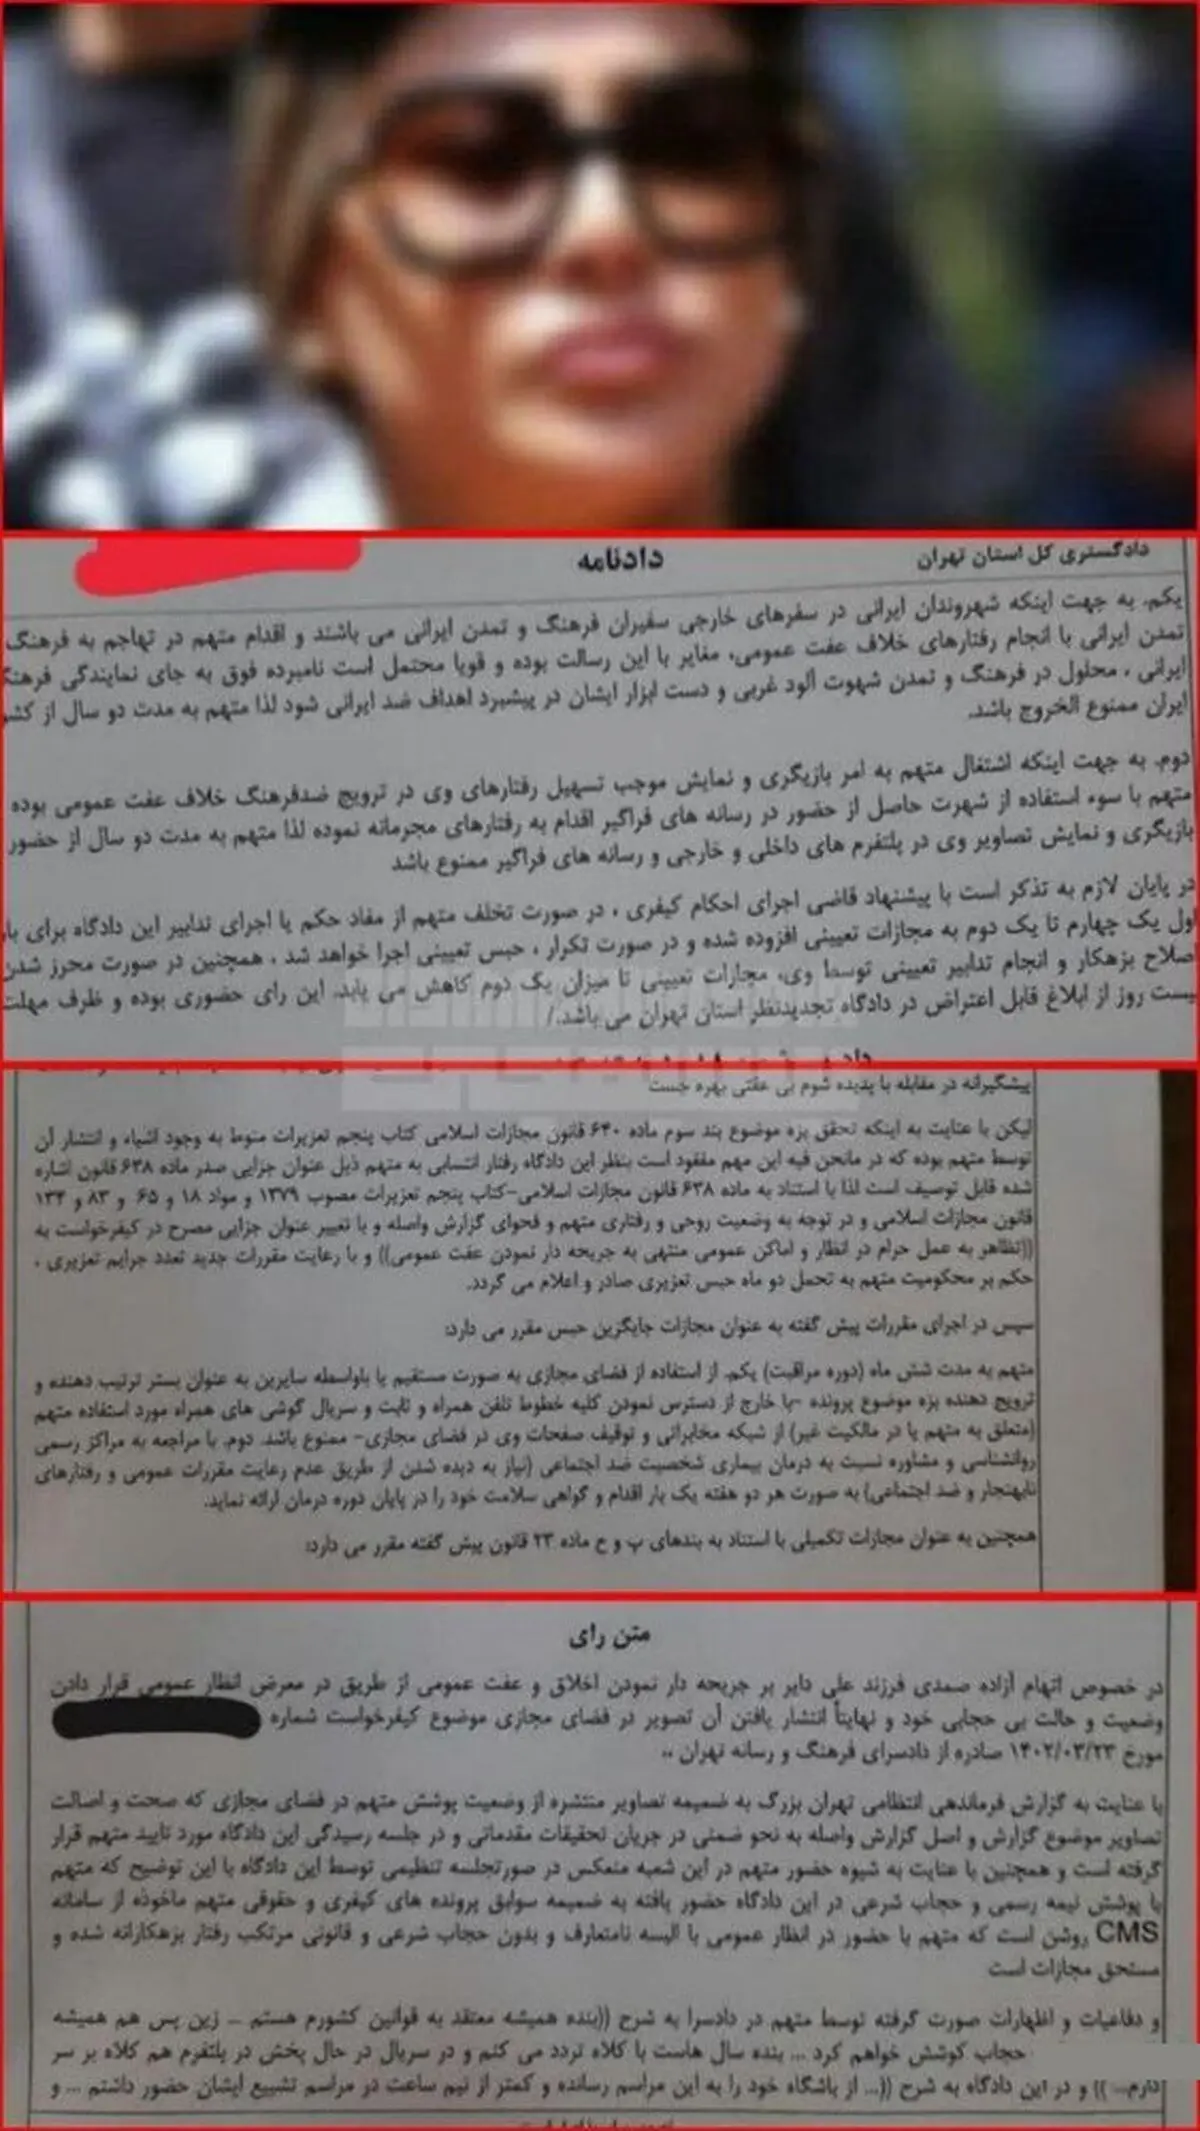 دادگستری کل استان تهران
دادنامه
یکم. به جهت اینکه شهروندان ایرانی در سفرهای خارجی سفیران فرهنگ و تمدن ایرانی می باشند و اقدام متهم در تهاجم به فرهنگ
تمدن ایرانی با انجام رفتارهای خلاف عفت عمومی، مغایر با این رسالت بوده و قویا محتمل است نامبرده فوق به جای نمایندگی
ایرانی ، محلول در فرهنگ و تمدن شهوت آلود غربی و دست ابزار ایشان در پیشبرد اهداف ضد ایرانی شود لذا متهم به مدت دو سال از
ایران ممنوع الخروج باشد.
دوم. به جهت اینکه اشتغال متهم به امر بازیگری و نمایش موجب تسهیل رفتارهای وی در ترویج ضدفرهنگ خلاف عفت عمومی بوده
متهم با سوء استفاده از شهرت حاصل از حضور در رسانه های فراگیر اقدام به رفتارهای مجرمانه نموده لذا متهم به مدت دو سال از حضور
بازیگری و نمایش تصاویر وی در پلتفرم های داخلی و خارجی و رسانه های فراگیر ممنوع باشد
در پایان لازم به تذکر است با پیشنهاد قاضی اجرای احکام کیفری ، در صورت تخلف متهم از مفاد حکم یا اجرای تدابیر این دادگاه برای
اول یک چهارم تا یک دوم به مجازات تعیینی افزوده شده و در صورت تکرار ، حبس تعیینی اجرا خواهد شد ، همچنین در صورت محرز شدن
صلاح بزهکار و انجام تدابیر تعیینی توسط وی، مجازات تعیینی تا میزان یک دوم کاهش می یابد. این رای حضوری بوده و ظرف مهلت
بیست روز از ابلاغ قابل اعتراض در دادگاه تجدیدنظر استان تهران می باشد./
پیشگیرانه در مقابله با پدیده شوم بی عفتی بهره جست
لیکن با عنایت به اینکه تحقق بزه موضوع بند سوم ماده ۶۴۰ قانون مجازات اسلامی کتاب پنجم تعزیرات منوط به وجود اشیاء و انتشار آن
توسط متهم بوده که در مانحن فیه این مهم مفقود است بنظر این دادگاه رفتار انتسابی به متهم ذیل عنوان جزایی صدر ماده ۶۳۸ قانون اشاره
شده قابل توصیف است لذا با استناد به ماده ۶۳۸ قانون مجازات اسلامی-کتاب پنجم تعزیرات مصوب ۱۳۷۹ و مواد ۱۸ و ۶۵ و ۸۳ و ۱۳۴
قانون مجازات اسلامی و در توجه به وضعیت روحی و رفتاری متهم و فحوای گزارش واصله و با تغییر عنوان جزایی مصرح در کیفرخواست به
((تظاهر به عمل حرام در انظار و اماکن عمومی منتهی به جریحه دار نمودن عفت عمومی)) و با رعایت مقررات جدید تعدد جرایم تعزیری ،
حکم بر محکومیت متهم به تحمل دو ماه حبس تعزیری صادر و اعلام می گردد.
سپس در اجرای مقررات پیش گفته به عنوان مجازات جایگزین حبس مقرر می دارد:
متهم به مدت شش ماه (دوره مراقبت) یکم. از استفاده از فضای مجازی به صورت مستقیم یا باواسطه سایرین به عنوان بستر ترتیب دهنده و
ترویج دهنده بزه موضوع پرونده -با خارج از دسترس نمودن کلیه خطوط تلفن همراه و ثابت و سریال گوشی های همراه مورد استفاده متهم
(متعلق به متهم یا در مالکیت غیر) از شبکه مخابراتی و توقیف صفحات وی در فضای مجازی- ممنوع باشد. دوم. با مراجعه به مراکز رسمی
روانشناسی و مشاوره نسبت به درمان بیماری شخصیت ضد اجتماعی (نیاز به دیده شدن از طریق عدم رعایت مقررات عمومی و رفتارهای
نابهنجار و ضد اجتماعی) به صورت هر دو هفته یک بار اقدام و گواهی سلامت خود را در پایان دوره درمان ارائه نماید.
همچنین به عنوان مجازات تکمیلی با استناد به بندهای پ و ح ماده ۲۳ قانون پیش گفته مقرر می دارد:
متن رای
در خصوص اتهام آزاده صمدی فرزند علی دایر بر جریحه دار نمودن اخلاق و عفت عمومی از طریق در معرض انظار عمومی قرار دادن
وضعیت و حالت بی حجابی خود و نهایتاً انتشار یافتن آن تصویر در فضای مجازی موضوع کیفرخواست شماره
مورخ ۱۴۰۲/۰۳/۲۳ صادره از دادسرای فرهنگ و رسانه تهران ..
با عنایت به گزارش فرماندهی انتظامی تهران بزرگ به ضمیمه تصاویر منتشره از وضعیت پوشش متهم در فضای مجازی که صحت و اصالت
تصاویر موضوع گزارش و اصل گزارش واصله به نحو ضمنی در جریان تحقیقات مقدماتی و در جلسه رسیدگی این دادگاه مورد تایید متهم قرار
گرفته است و همچنین با عنایت به شیوه حضور متهم در این شعبه منعکس در صورتجلسه تنظیمی توسط این دادگاه با این توضیح که متهم
با پوشش نیمه رسمی و حجاب شرعی در این دادگاه حضور یافته به ضمیمه سوابق پرونده های کیفری و حقوقی متهم ماخوذه از سامانه
CMS روشن است که متهم با حضور در انظار عمومی با البسه نامتعارف و بدون حجاب شرعی و قانونی مرتکب رفتار بزهکارانه شده و
مستحق مجازات است
و دفاعیات و اظهارات صورت گرفته توسط متهم در دادسرا به شرح ((بنده همیشه معتقد به قوانین کشورم هستم ... زین پس هم همیشه
حجاب کوشش خواهم کرد ... بنده سال هاست با کلاه تردد می کنم و در سریال در حال پخش در پلتفرم هم کلاه بر سر
دارم... )) و در این دادگاه به شرح ((... از باشگاه خود را به این مراسم رسانده و کمتر از نیم ساعت در مراسم تشییع ایشان حضور داشتم ... و